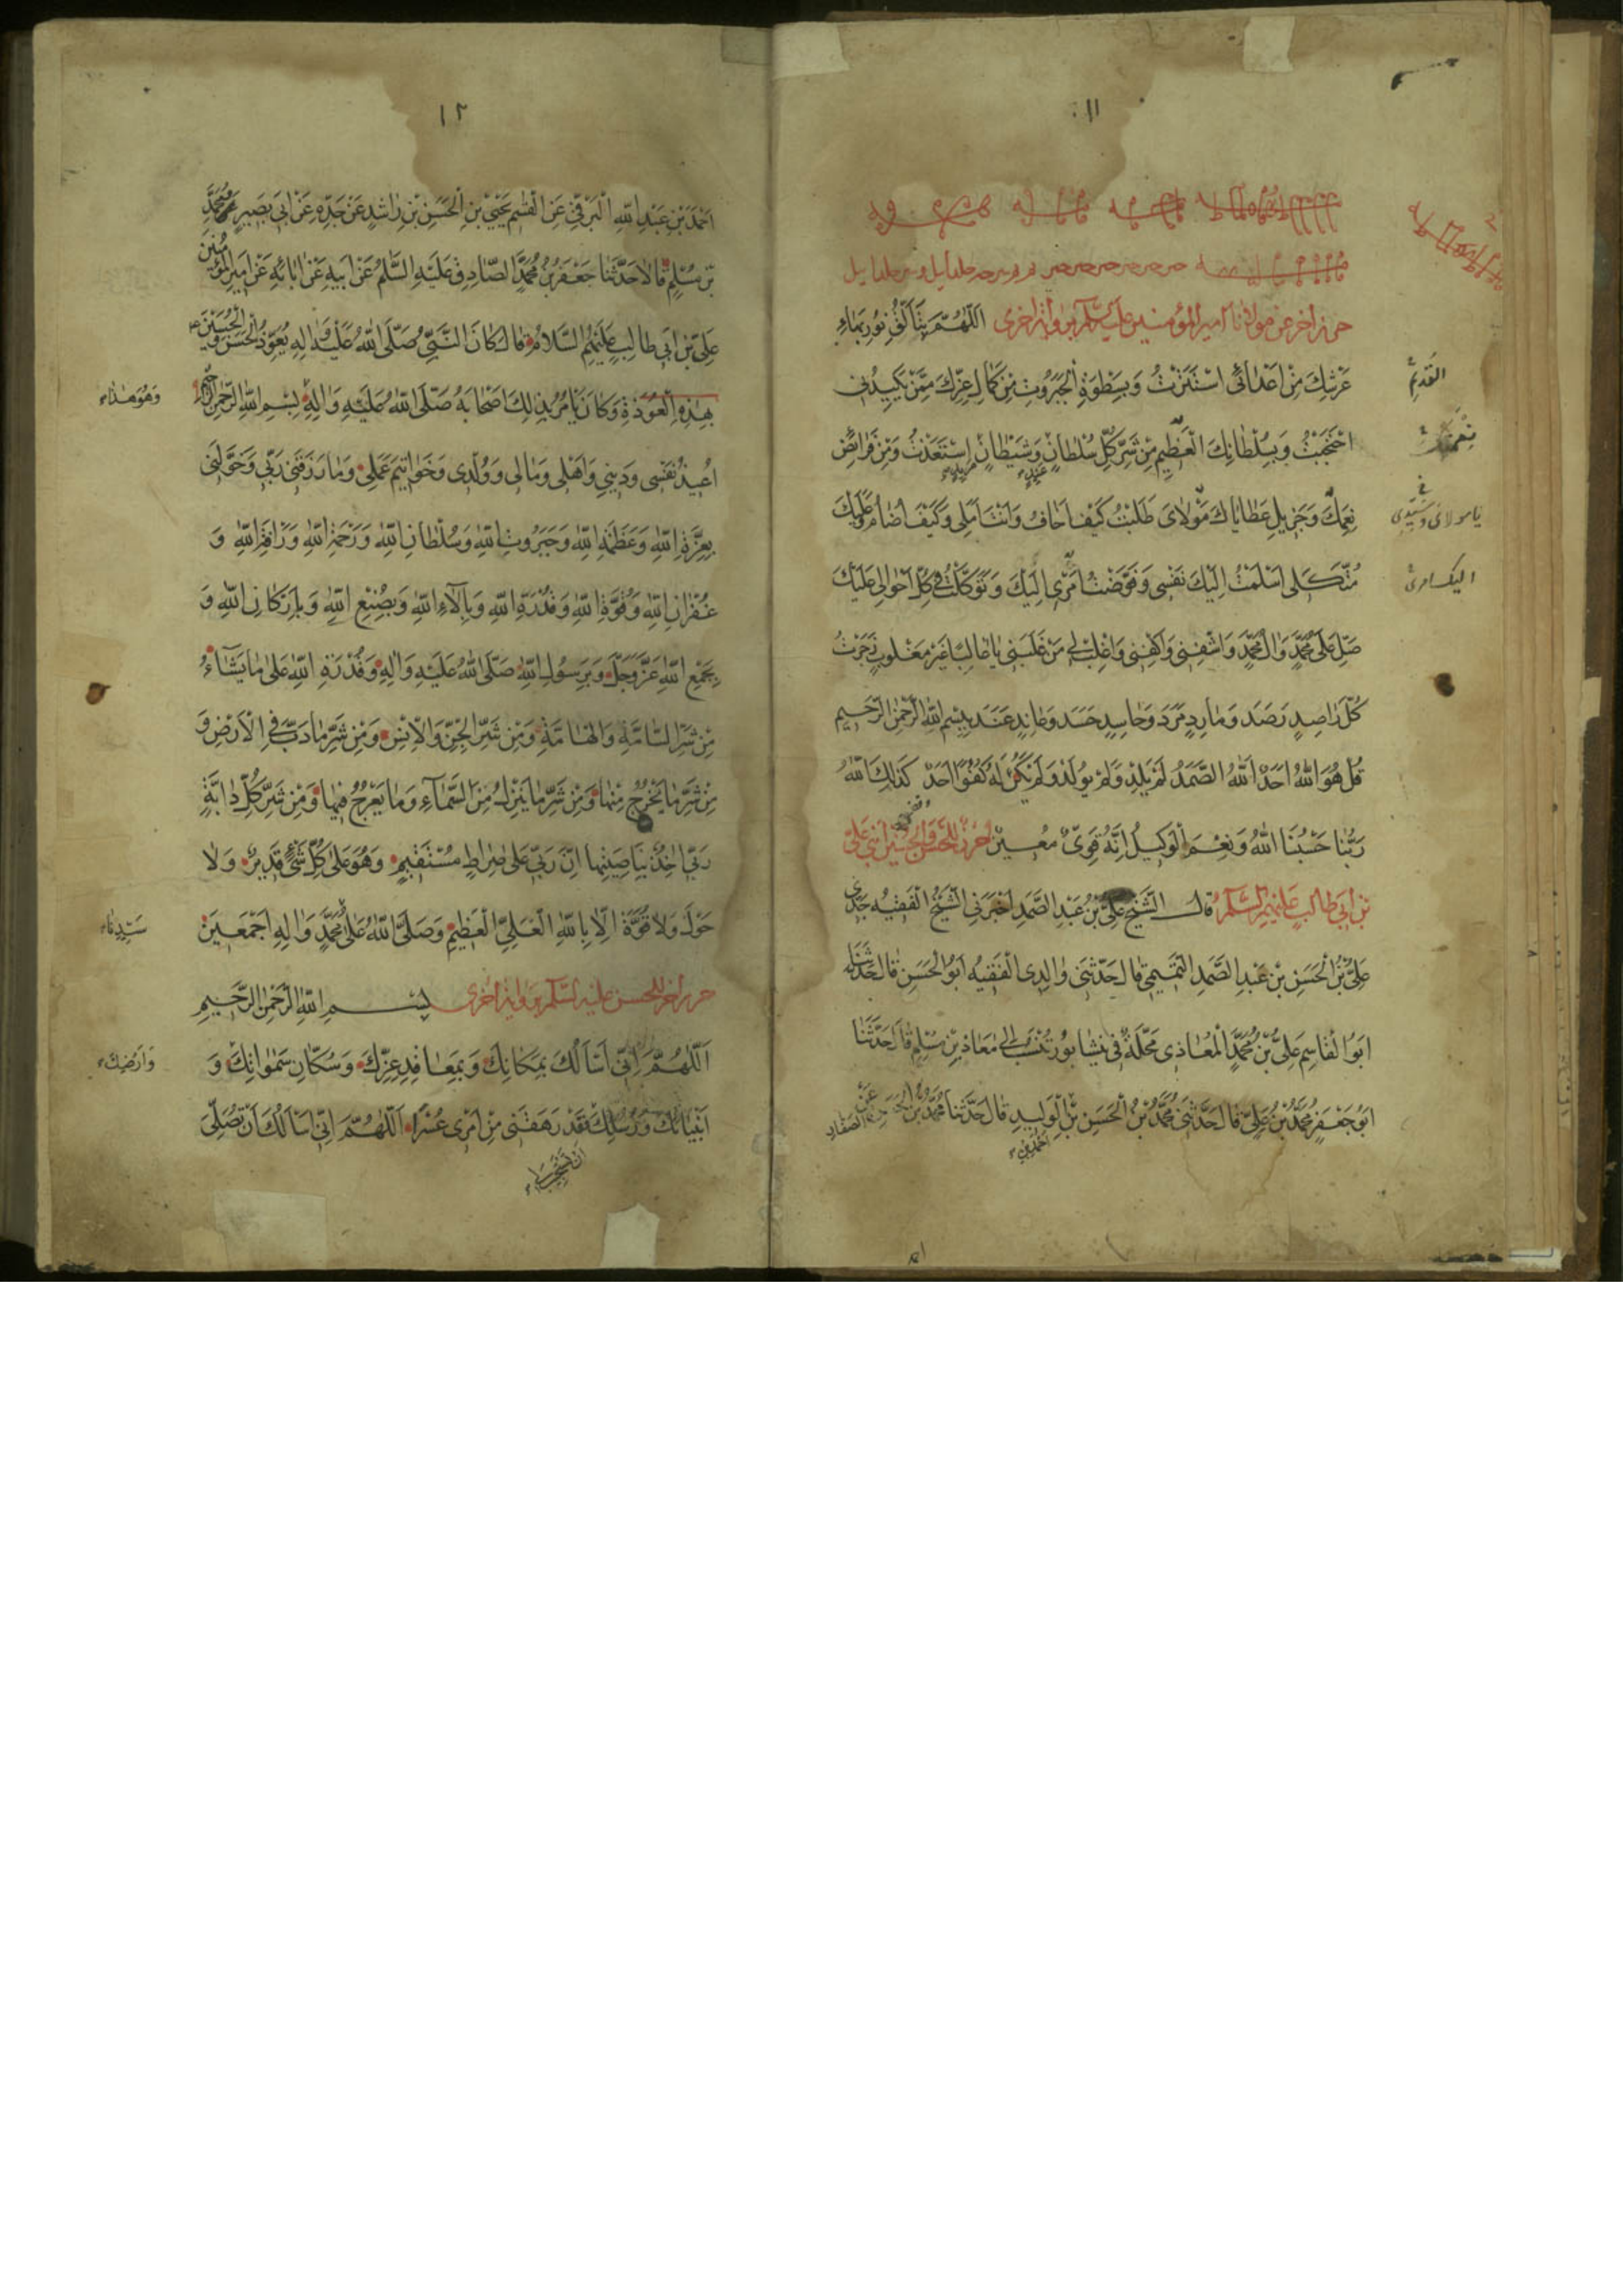 ١١
حرز آخر عن مولانا أمير المؤمنين عليه السّلم برواية أخرى اللّهُمَّ بِتَأَلُّقِ نُورِ بَهاءِ
عَرْشِكَ مِنْ أَعْدائى اسْتَتَرْتُ وَبِسَطْوَةِ الْجَبَرُوتِ مِنْ كَمالِ عِزِّكَ مِمَّنْ يَكيدُنى
القديم
احْتَجَبْتُ وَبِسُلْطانِكَ الْعَظيمِ مِنْ شَرِّ كُلِّ سُلْطانٍ وَشَيْطانٍ اسْتَعَذْتُ وَمِنْ فَرائِضِ
نعمتك
نِعَمِكَ وَجَزيلِ عَطاياكَ مَوْلاىَ طَلَبْتُ كَيْفَ اَخافُ وَاَنْتَ اَمَلى وَكَيْفَ اُضامُ وَعَلَيْكَ
يا مولائى وسيدى
مُتَّكَلى اَسْلَمْتُ اِلَيْكَ نَفْسى وَفَوَّضْتُ اَمْرى اِلَيْكَ وَتَوَكَّلْتُ فى كُلِّ اَحْوالى عَلَيْكَ
صَلِّ عَلى مُحَمَّدٍ وَالِ مُحَمَّدٍ وَاشْفِنى وَاكْفِنى وَاغْلِبْ لى مَنْ غَلَبَنى يا غالِبًا غَيْرَ مَغْلُوبٍ زَجَرْتُ
كُلَّ راصِدٍ رَصَدَ وَمارِدٍ مَرَدَ وَحاسِدٍ حَسَدَ وَعانِدٍ عَنَدَ بِبِسْمِ اللهِ الرَّحْمنِ الرَّحيمِ
قُلْ هُوَ اللهُ اَحَدٌ اَللهُ الصَّمَدُ لَمْ يَلِدْ وَلَمْ يُولَدْ وَلَمْ يَكُنْ لَهُ كُفُوًا اَحَدٌ كَذلِكَ اللهُ
رَبُّنا حَسْبُنَا اللهُ وَنِعْمَ الْوَكيلُ اِنَّهُ قَوِىٌّ مُعينٌ حرز للحسن والحسين ابنى على
بن أبى طالب عليهم السّلم قال الشَّيْخُ عَلِىُّ بْنُ عَبْدِ الصَّمَدِ اَخْبَرَنِى الشَّيْخُ الْفَقيهُ جَدّى
عَلِىُّ بْنُ الْحَسَنِ بْنِ عَبْدِ الصَّمَدِ التَّميمى قالَ حَدَّثَنى والِدى الْفَقيهُ اَبُو الْحَسَنِ قالَ حَدَّثَنا
اَبُوا الْقاسِمِ عَلِىُّ بْنُ مُحَمَّدٍ الْمُعاذى مَحَلَّةٌ فى نيشابُورَ تُنْسَبُ اِلى مُعاذِ بْنِ مُسْلِمٍ قالَ حَدَّثَنا
اَبُو جَعْفَرٍ مُحَمَّدُ بْنُ عَلِىٍّ قالَ حَدَّثَنى مُحَمَّدُ بْنُ الْحَسَنِ بْنِ الْوَليدِ قالَ حَدَّثَنا مُحَمَّدُ بْنُ الْحَسَنِ الصَّفّارِ عَنْ
احمد بن
١٢
اَحْمَدَ بْنِ عَبْدِ اللهِ الْبَرْقى عَنِ الْقاسِمِ يَحْيَى بْنِ الْحَسَنِ بْنِ راشِدٍ عَنْ جَدِّهِ عَنْ اَبى بَصيرٍ عَنْ مُحَمَّدِ
بْنِ مُسْلِمٍ قالا حَدَّثَنا جَعْفَرُ بْنُ مُحَمَّدٍ الصّادِقُ عَلَيْهِ السَّلمُ عَنْ اَبيهِ عَنْ ابائِهِ عَنْ اَميرِ الْمُؤْمِنينَ
عَلِىِّ بْنِ اَبى طالِبٍ عَلَيْهِمُ السَّلامُ قالَ كانَ النَّبِىُّ صَلَّى اللهُ عَلَيْهِ وَالِهِ يُعَوِّذُ الْحَسَنَ وَالْحُسَيْنَ
بِهذِهِ الْعُوذَةِ وَكانَ يَأْمُرُ بِذلِكَ اَصْحابَهُ صَلَّى اللهُ عَلَيْهِ وَالِهِ بِسْمِ اللهِ الرَّحْمنِ الرَّحيمِ
وَهُوَ هذا
اُعيذُ نَفْسى وَدينى وَاَهْلى وَمالى وَوُلْدى وَخَواتيمَ عَمَلى وَما رَزَقَنى رَبّى وَخَوَّلَنى
بِعِزَّةِ اللهِ وَعَظَمَةِ اللهِ وَجَبَرُوتِ اللهِ وَسُلْطانِ اللهِ وَرَحْمَةِ اللهِ وَرَأْفَةِ اللهِ وَ
غُفْرانِ اللهِ وَقُوَّةِ اللهِ وَقُدْرَةِ اللهِ وَبِآلاءِ اللهِ وَبِصُنْعِ اللهِ وَبِاَرْكانِ اللهِ وَ
بِجَمْعِ اللهِ عَزَّ وَجَلَّ وَبِرَسُولِ اللهِ صَلَّى اللهُ عَلَيْهِ وَالِهِ وَقُدْرَةِ اللهِ عَلى ما يَشآءُ
مِنْ شَرِّ السّامَّةِ وَالْهامَّةِ وَمِنْ شَرِّ الْجِنِّ وَالْاِنْسِ وَمِنْ شَرِّ ما دَبَّ فِى الْاَرْضِ وَ
مِنْ شَرِّ ما يَخْرُجُ مِنْها وَمِنْ شَرِّ ما يَنْزِلُ مِنَ السَّمآءِ وَما يَعْرُجُ فيها وَمِنْ شَرِّ كُلِّ دابَّةٍ
رَبّى اخِذٌ بِناصِيَتِها اِنَّ رَبّى عَلى صِراطٍ مُسْتَقيمٍ وَهُوَ عَلى كُلِّ شَىْءٍ قَديرٌ وَلا
حَوْلَ وَلا قُوَّةَ اِلّا بِاللهِ الْعَلِىِّ الْعَظيمِ وَصَلَّى اللهُ عَلى مُحَمَّدٍ وَالِهِ اَجْمَعينَ
سَيِّدِنا
حرز آخر للحسن عليه السّلم برواية أخرى بِسْمِ اللهِ الرَّحْمنِ الرَّحيمِ
اَللّهُمَّ اِنّى اَسْاَلُكَ بِمَكانِكَ وَبِمَعاقِدِ عِزِّكَ وَسُكّانِ سَمواتِكَ وَ
وَاَرْضِكَ
اَنْبِيائِكَ وَرُسُلِكَ فَقَدْ رَهَقَنى مِنْ اَمْرى عُسْرًا اَللّهُمَّ اِنّى اَسْاَلُكَ اَنْ تُصَلِّىَ